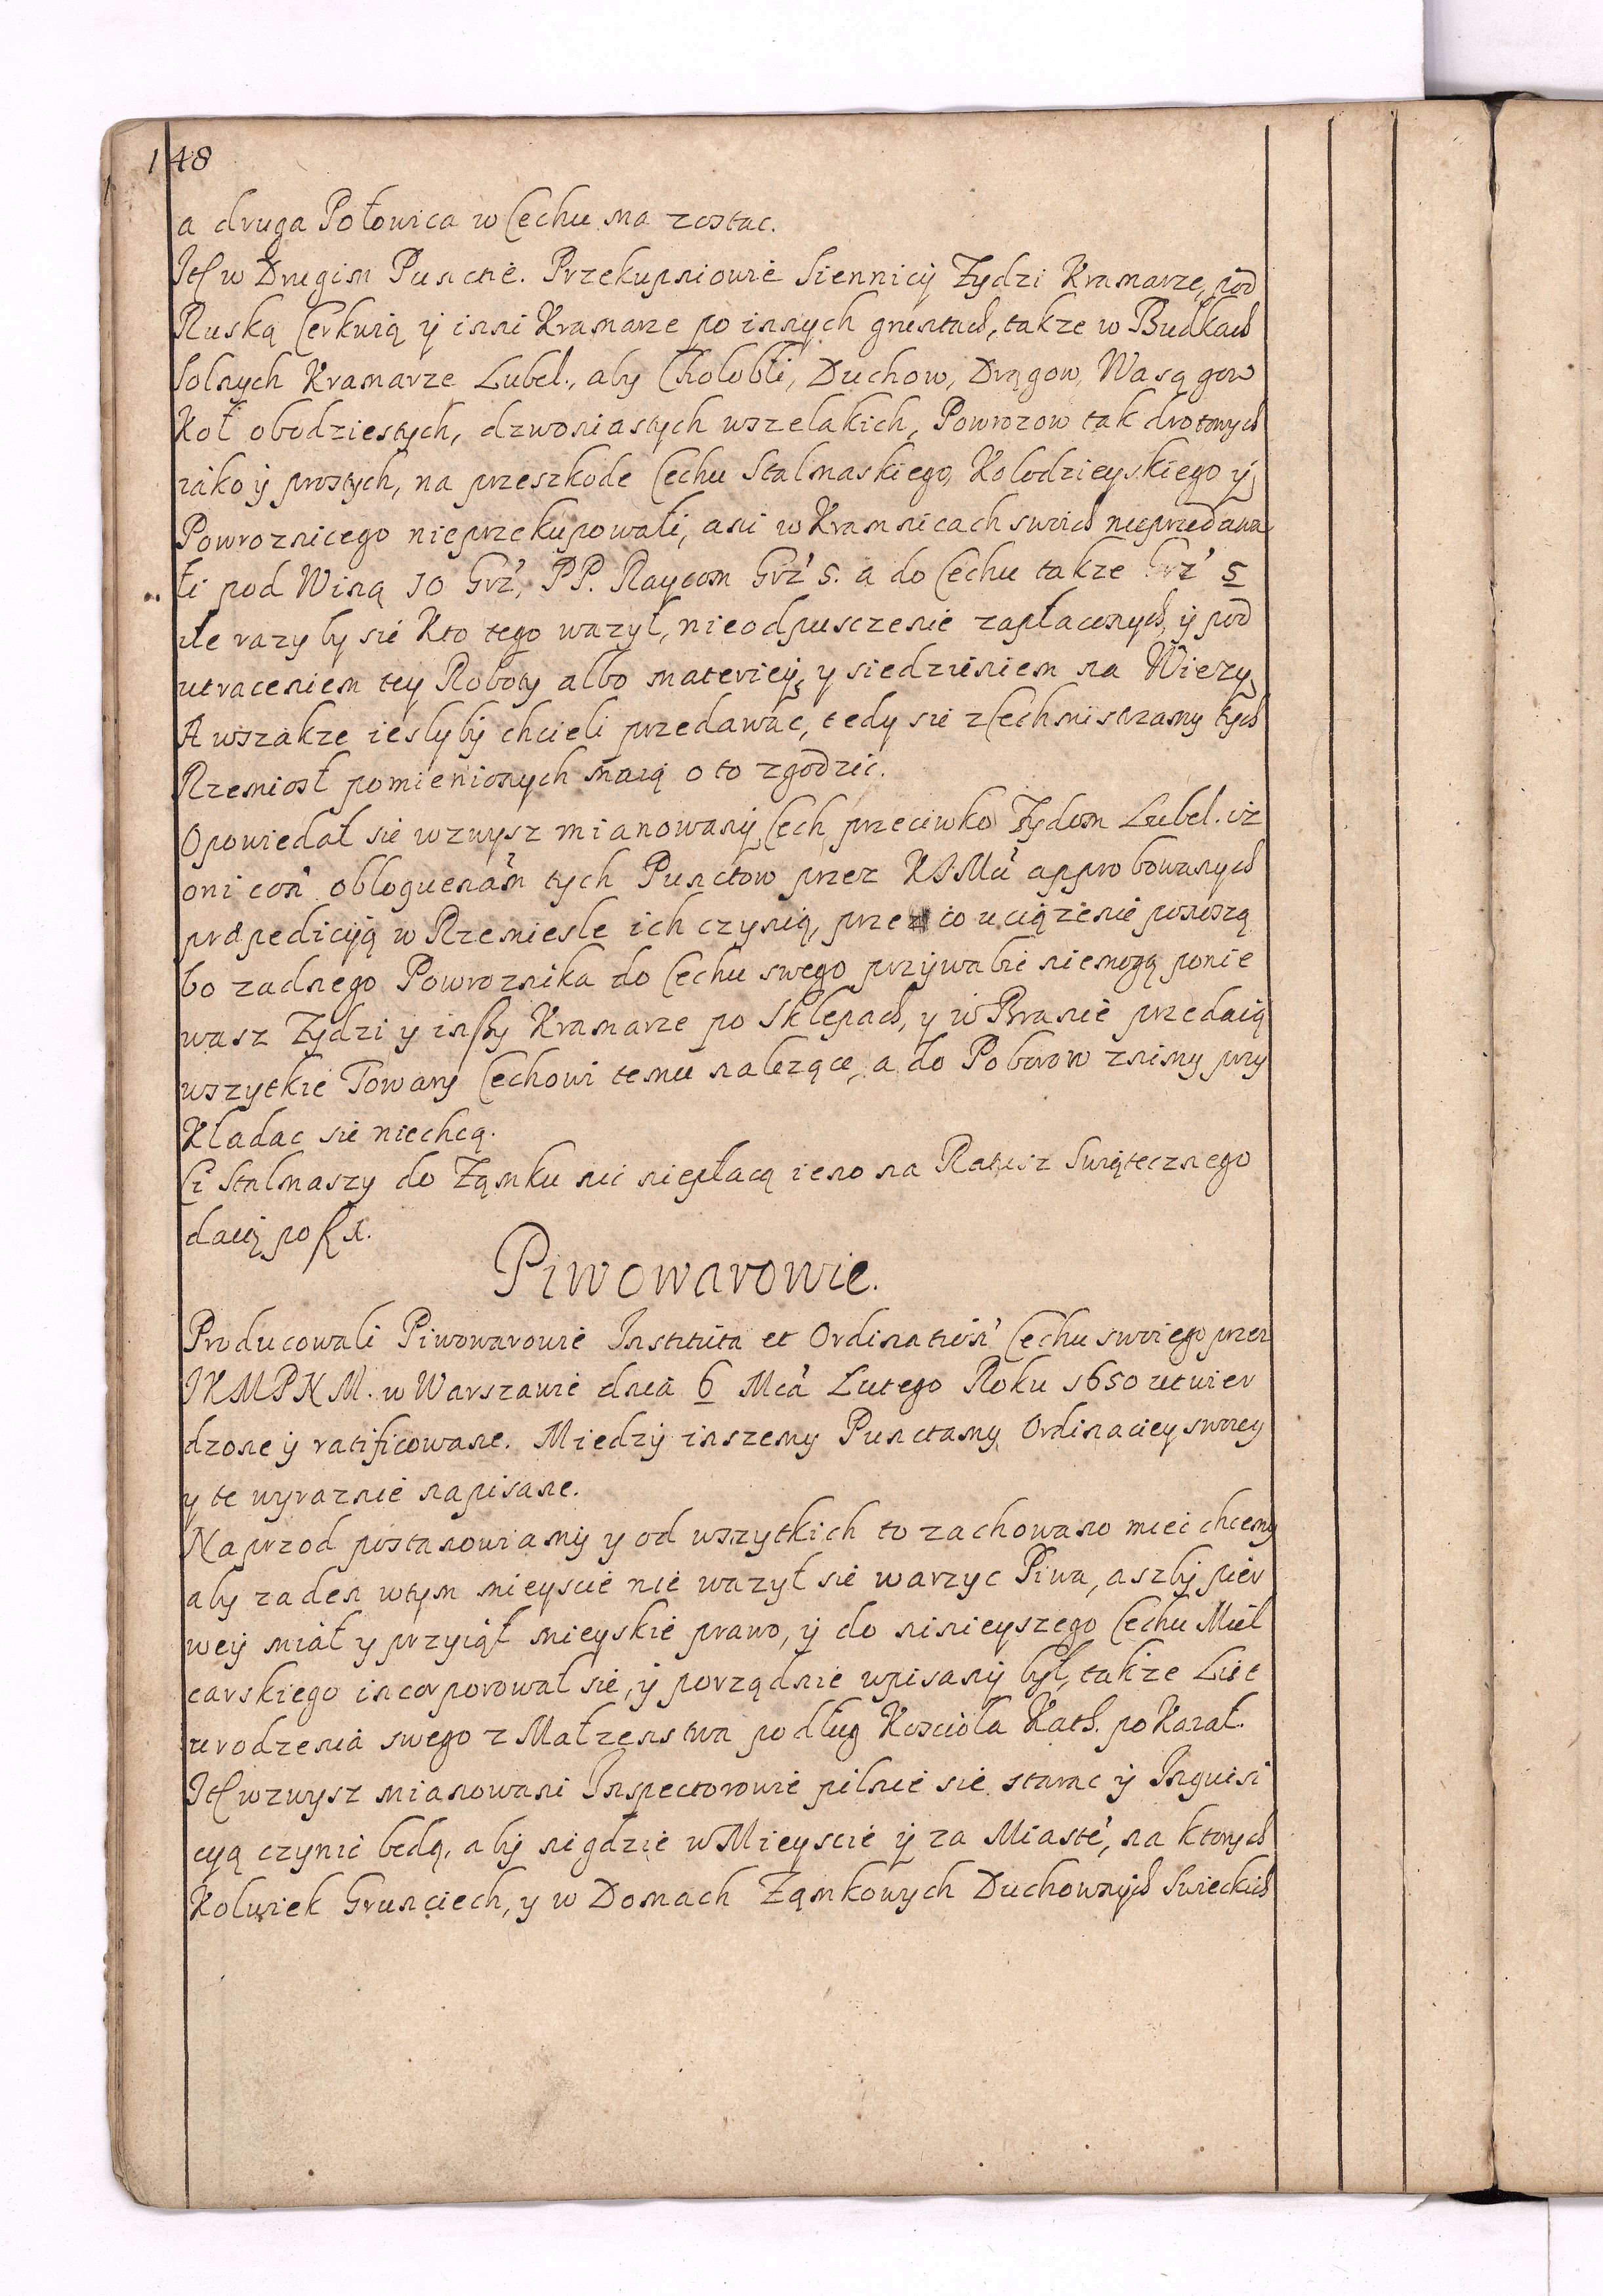 148
a druga Połowica w Cechu ma zostac.
Itl w Drugim Punctie. Przekupniowie Siennicy Zydzi Kramarze, pod
Ruską Cerkwią ÿ inni Kramarze po innych gruntach, takze w Budkach
Solnych Kramarze Lubel., aby Chołobli, Duchow, Drągow, Wasągow
Koł obodziestych, dzwoniastych wszelakich, Powrozow tak drotowych
iako ÿ prostych, na przeszkode Cechu Stalmaskiego, Kolodzieyskiego ÿ
Powroznicego nieprzekupowali, ani w Kramnicach swoich nieprzedawa
li pod Winą 10 Grz, PP. Raycom Grz 5. a do Cechu takze Grz 5
ile razy by sie Kto tego wazył, nieodpusczenie zapłaconych, ÿ pod
utraceniem tey Roboty albo materiey, y siedzieniem na Wiezy
A wszakze ieslyby chcieli przedawac, tedy sie z Cechmistrzamy tych
Rzemiosł pomienionych maią o to zgodzic.
Opowiedał sie wzwysz mianowany Cech przeciwko Zydom Lubel. iż
oni con obloguenam tych Punctow przez KJMci approbowanych
prapediciją w Rzemiesle ich czynią, przez co uciązenie ponoszą
bo zadnego Powroznika do Cechu swego przywabic niemogą ponie
wasz Zydzi y inszy Kramarze po Sklepach, y w Bramie przedaią
wszytkie Towary Cechowi temu nalezące, a do Poborow znimy przy
Kładac sie niechcą.
Ci Stalmaszy do Ząmku nic niepłacą ieno na Ratusz Swiątecznego
daią po fl x.
Piwowarowie.
Producowali Piwowarowie Instituta et Ordination Cechu swoiego przez
JKMPNM. w Warszawie dnia 6 Mca Lutego Roku 1650 utwier
dzone ÿ ratificowane. Miedzy inszemy Punctamy Ordinaciey swoiey
y te wyraznie napisane.
Naprzod postanowiamy y od wszytkich to zachowano miec chcemy
aby zaden wtym mieyscie nie wazył sie warzyc Piwa, aszby pier
wey miał y przyiął mieyskie prawo, ÿ do ninieyszego Cechu Miel
carskiego incorporował sie, ÿ porządnie wpisany był, takze List
urodzenia swego z Małzenstwa podług Kosciola Kath. pokazał.
Itl wzwysz mianowani Inspectorowie pilnie sie starac ÿ Inquisi
cyą czynic bedą, aby nigdzie w Mieyscie ÿ za Miaste, na ktorych
Kolwiek Grunciech, y w Domach Ząmkowych Duchownych Swieckich